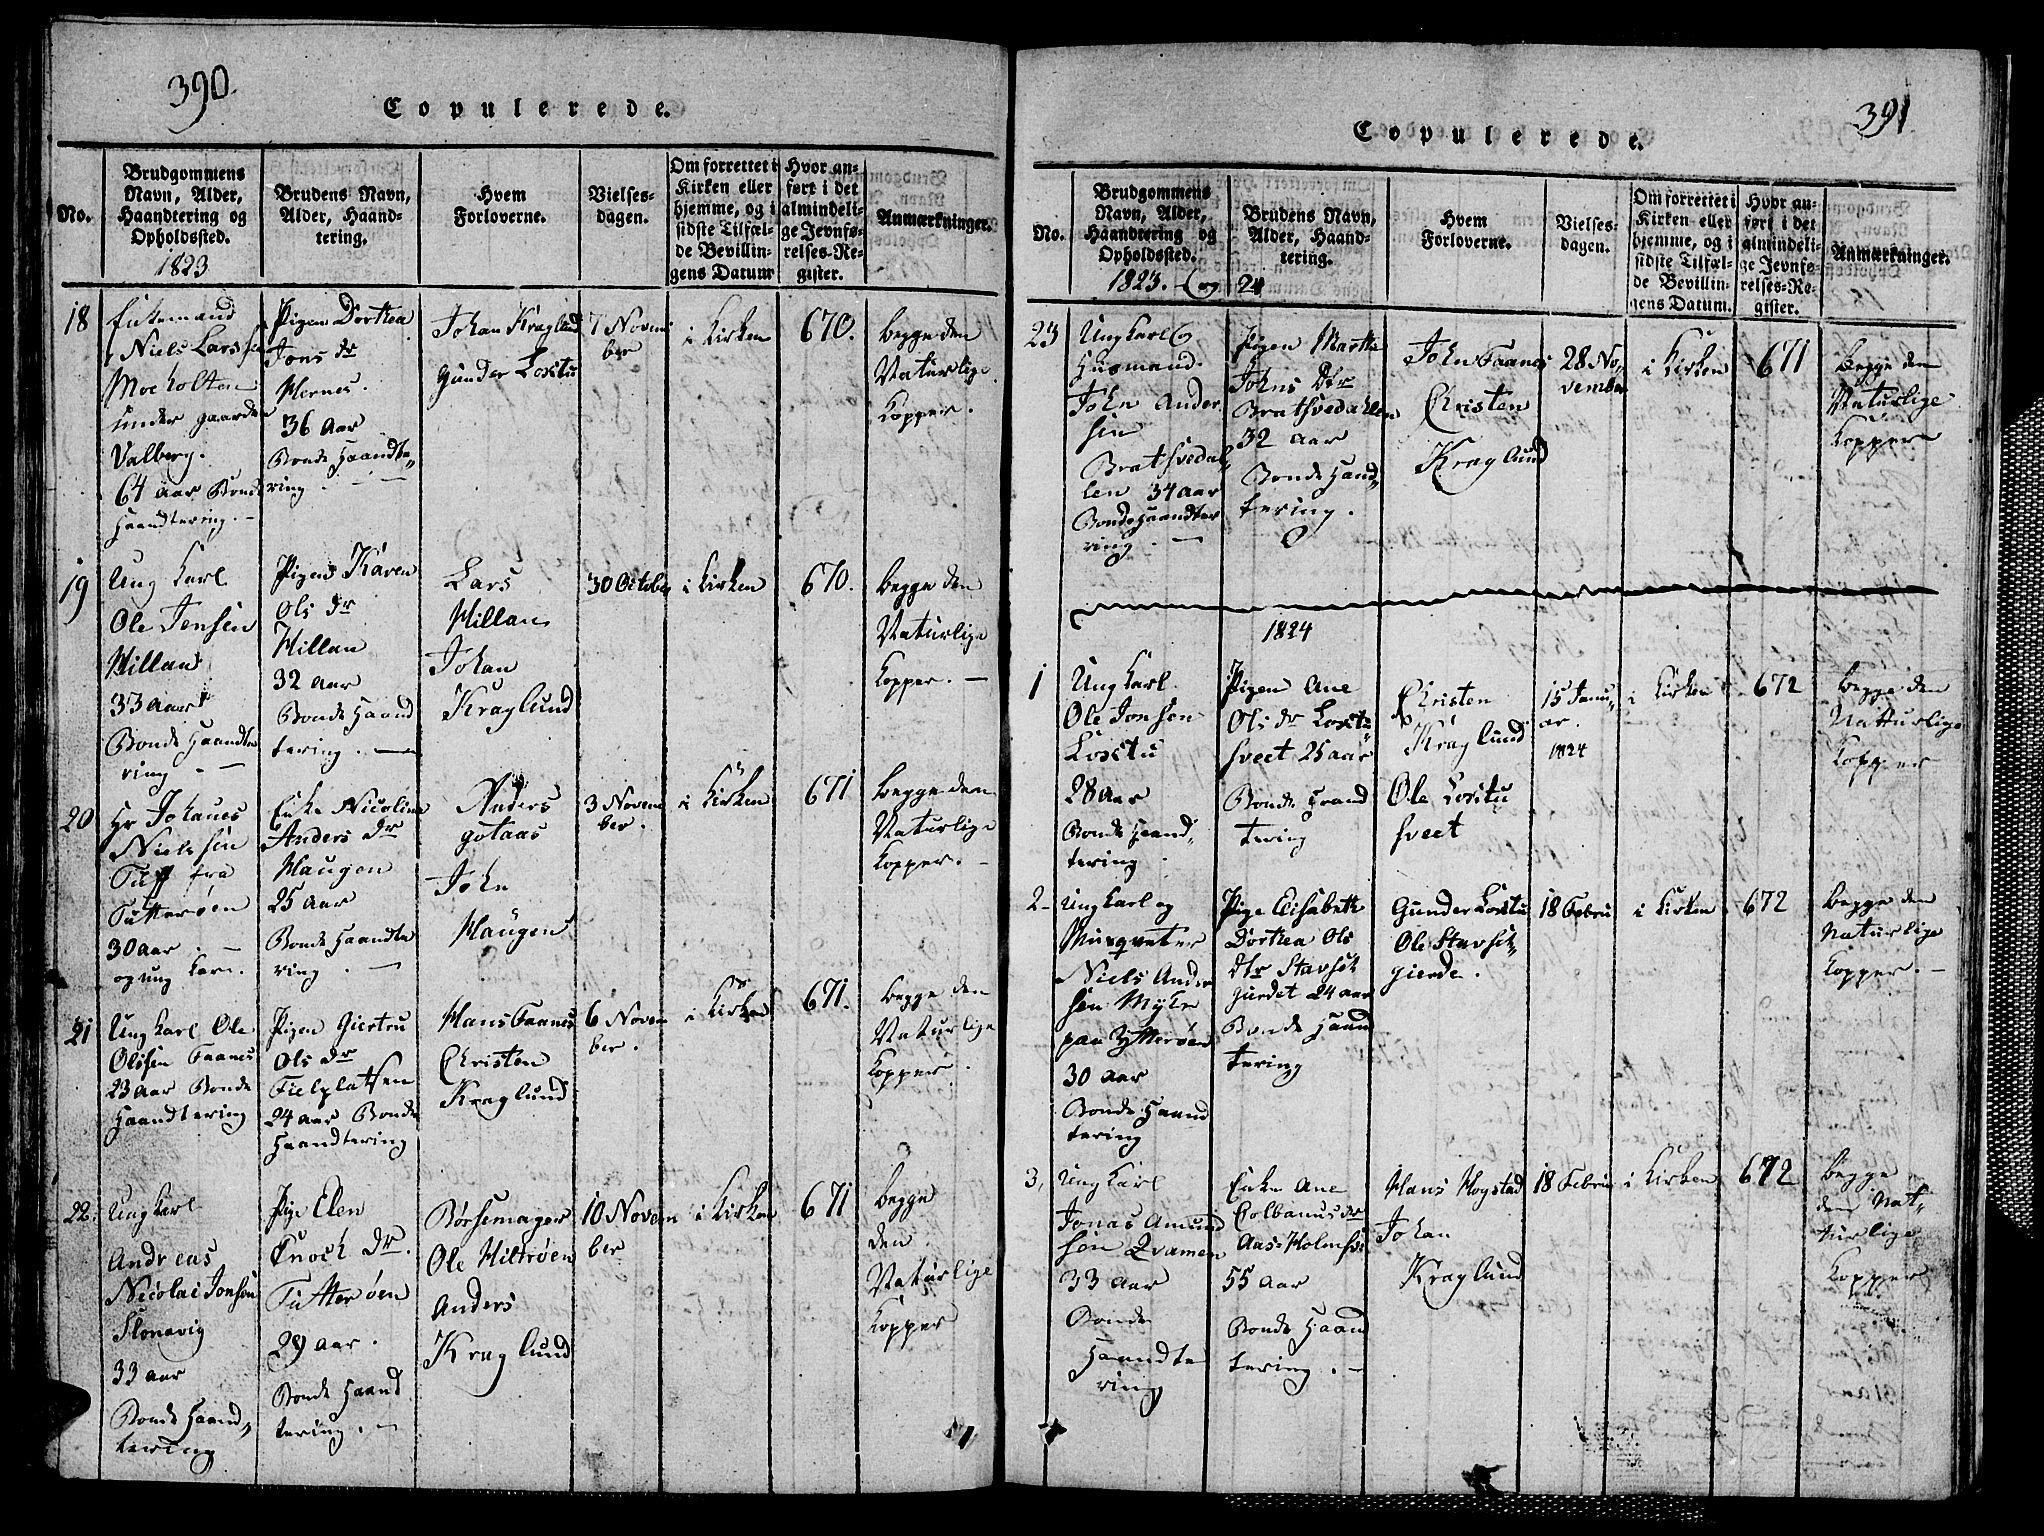 390.
Copulerede.
No.
Brudgommens
Navn, Alder,
Haandtering og
Opholdssted.
1823
Brudens Navn,
Alder, Haand-
tering.
Hvem
Forloverne.
Vielses-
dagen.
Om forrettet i
Kirken eller
hjemme, og i
sidste Tilfæl-
de Bevillin-
gens Datum
Hvor an-
ført i det
almindeli-
ge Jevnfø-
relses-Re-
gister.
Anmærkninger.
18
Enkemand
Niels Larssen
Moeholten
under gaarden
Valberg.
64 Aar Bonde
Haandtering.
Pigen Dorthea
Jons dr
Mernes.
36 Aar
Bonde Haandte
ring.
Johan Kraglund
Gunder Loxtu
7 Novem
ber
i Kirken
670.
begge den
Naturlige
Kopper.
19
Ung Karl
Ole Jensen
Millan
33 Aar
Bonde Haandte
ring
Pigen Karen
Ols dr
Millan
32 Aar
Bonde Haand
tering.
Lars
Millan
Johan
Kraglund
30 October
i Kirken
670.
begge den
Naturlige
Kopper.
20
Hr Johanes
Nielssen
Tuff fra
Tutterøen
30 aar
og ung Karl.
Enke Nicoline
Anders dr
Haugen
25 Aar
Bonde Haandte
ring.
Anders
gotaas
John
Haugen
3 Novem
ber.
i Kirken
671
begge den
Naturlige
Kopper.
21
Ung Karl Ole
Olssen Faanes
23 Aar Bonde
Haandtering
Pigen Giertru
Ols dr
Fielplatsen
24 Aar Bonde
Haandtering
Hans Faanes
Christen
Kraglund
6 Novem
ber.
i Kirken
671.
begge den
Naturlige
Kopper.
22.
Ung Karl
Andreas
Nicolai Jonsen
Slonavig
33 aar
Bonde Haand
tering
Pige Elen
Enoch dr.
Tutterøen
29 aar.
Bonde Haand
tering.
Børsemager
Ole Hiltrøen
Anders
Kraglund
10 Novem
ber
i Kirken
671
begge
den
Naturlige
Kopper
391
Copulerede.
No.
Brudgommens
Navn, Alder,
Haandtering og
Opholdssted.
1823. og
Brudens Navn,
Alder, Haand-
tering.
24
Hvem
Forloverne.
Vielses-
dagen.
Om forrettet i
Kirken eller
hjemme, og i
sidste Tilfæl-
de Bevillin-
gens Datum.
Hvor an-
ført i det
almindeli-
ge Jevnfø-
relses-Re-
gister.
Anmærkninger.
23
Ung Karl &
Husmand
John Ander
sen
Bratsvedal
len 34 Aar
Bonde Haandte
ring.
Pigen Martha
Johns Dtr
Bratsvedahlen
32 Aar
Bonde Haand
tering.
John Faanes
Christen
Kraglund
28 No
vember
i Kirken
671
begge den
Naturlige
Kopper
1824
1
Ung Karl
Ole Jonsen
Loxtu
28 Aar
Bonde Haand
tering.
Pigen Ane
Ols dr Loxtu
sveet 25 aar
Bonde Haand
tering
Christen
Kraglund
Ole Loxtu
sveet
15 Janu
ar.
1824
i Kirken
672
begge den
Naturlige
Kopper
2
Ung Karl og
Musqveter
Niels Ander
sen Mykle
paa Ytterøen
30 Aar
Bonde Haand
tering
Pige Elisabeth
Dorthea Ols
dtr Stavset
gierdet 24 aar
Bonde Haand
tering
Gunder Loxtu
Ole Stavset
gierde.
18 Febru
i Kirken
672
begge den
Naturlige
Kopper.
3,
Ung Karl
Jonas Amund
sen Qvamen
33 Aar
Bonde
Haandte
ring
Enke Ane
Colbanus dr
Aas-Holmsve
55 Aar
Bonde Haand
tering.
Hans Hogstad
Johan
Kraglund
18 Febru
i Kirken
672
begge
den Nat
turlige
Kopper